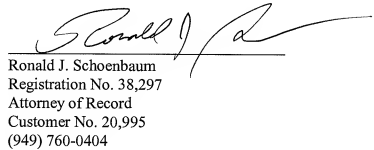 Ronald J. Schoenbaum
Registration No. 38,297
Attorney of Record
Customer No. 20,995
(949) 760-0404